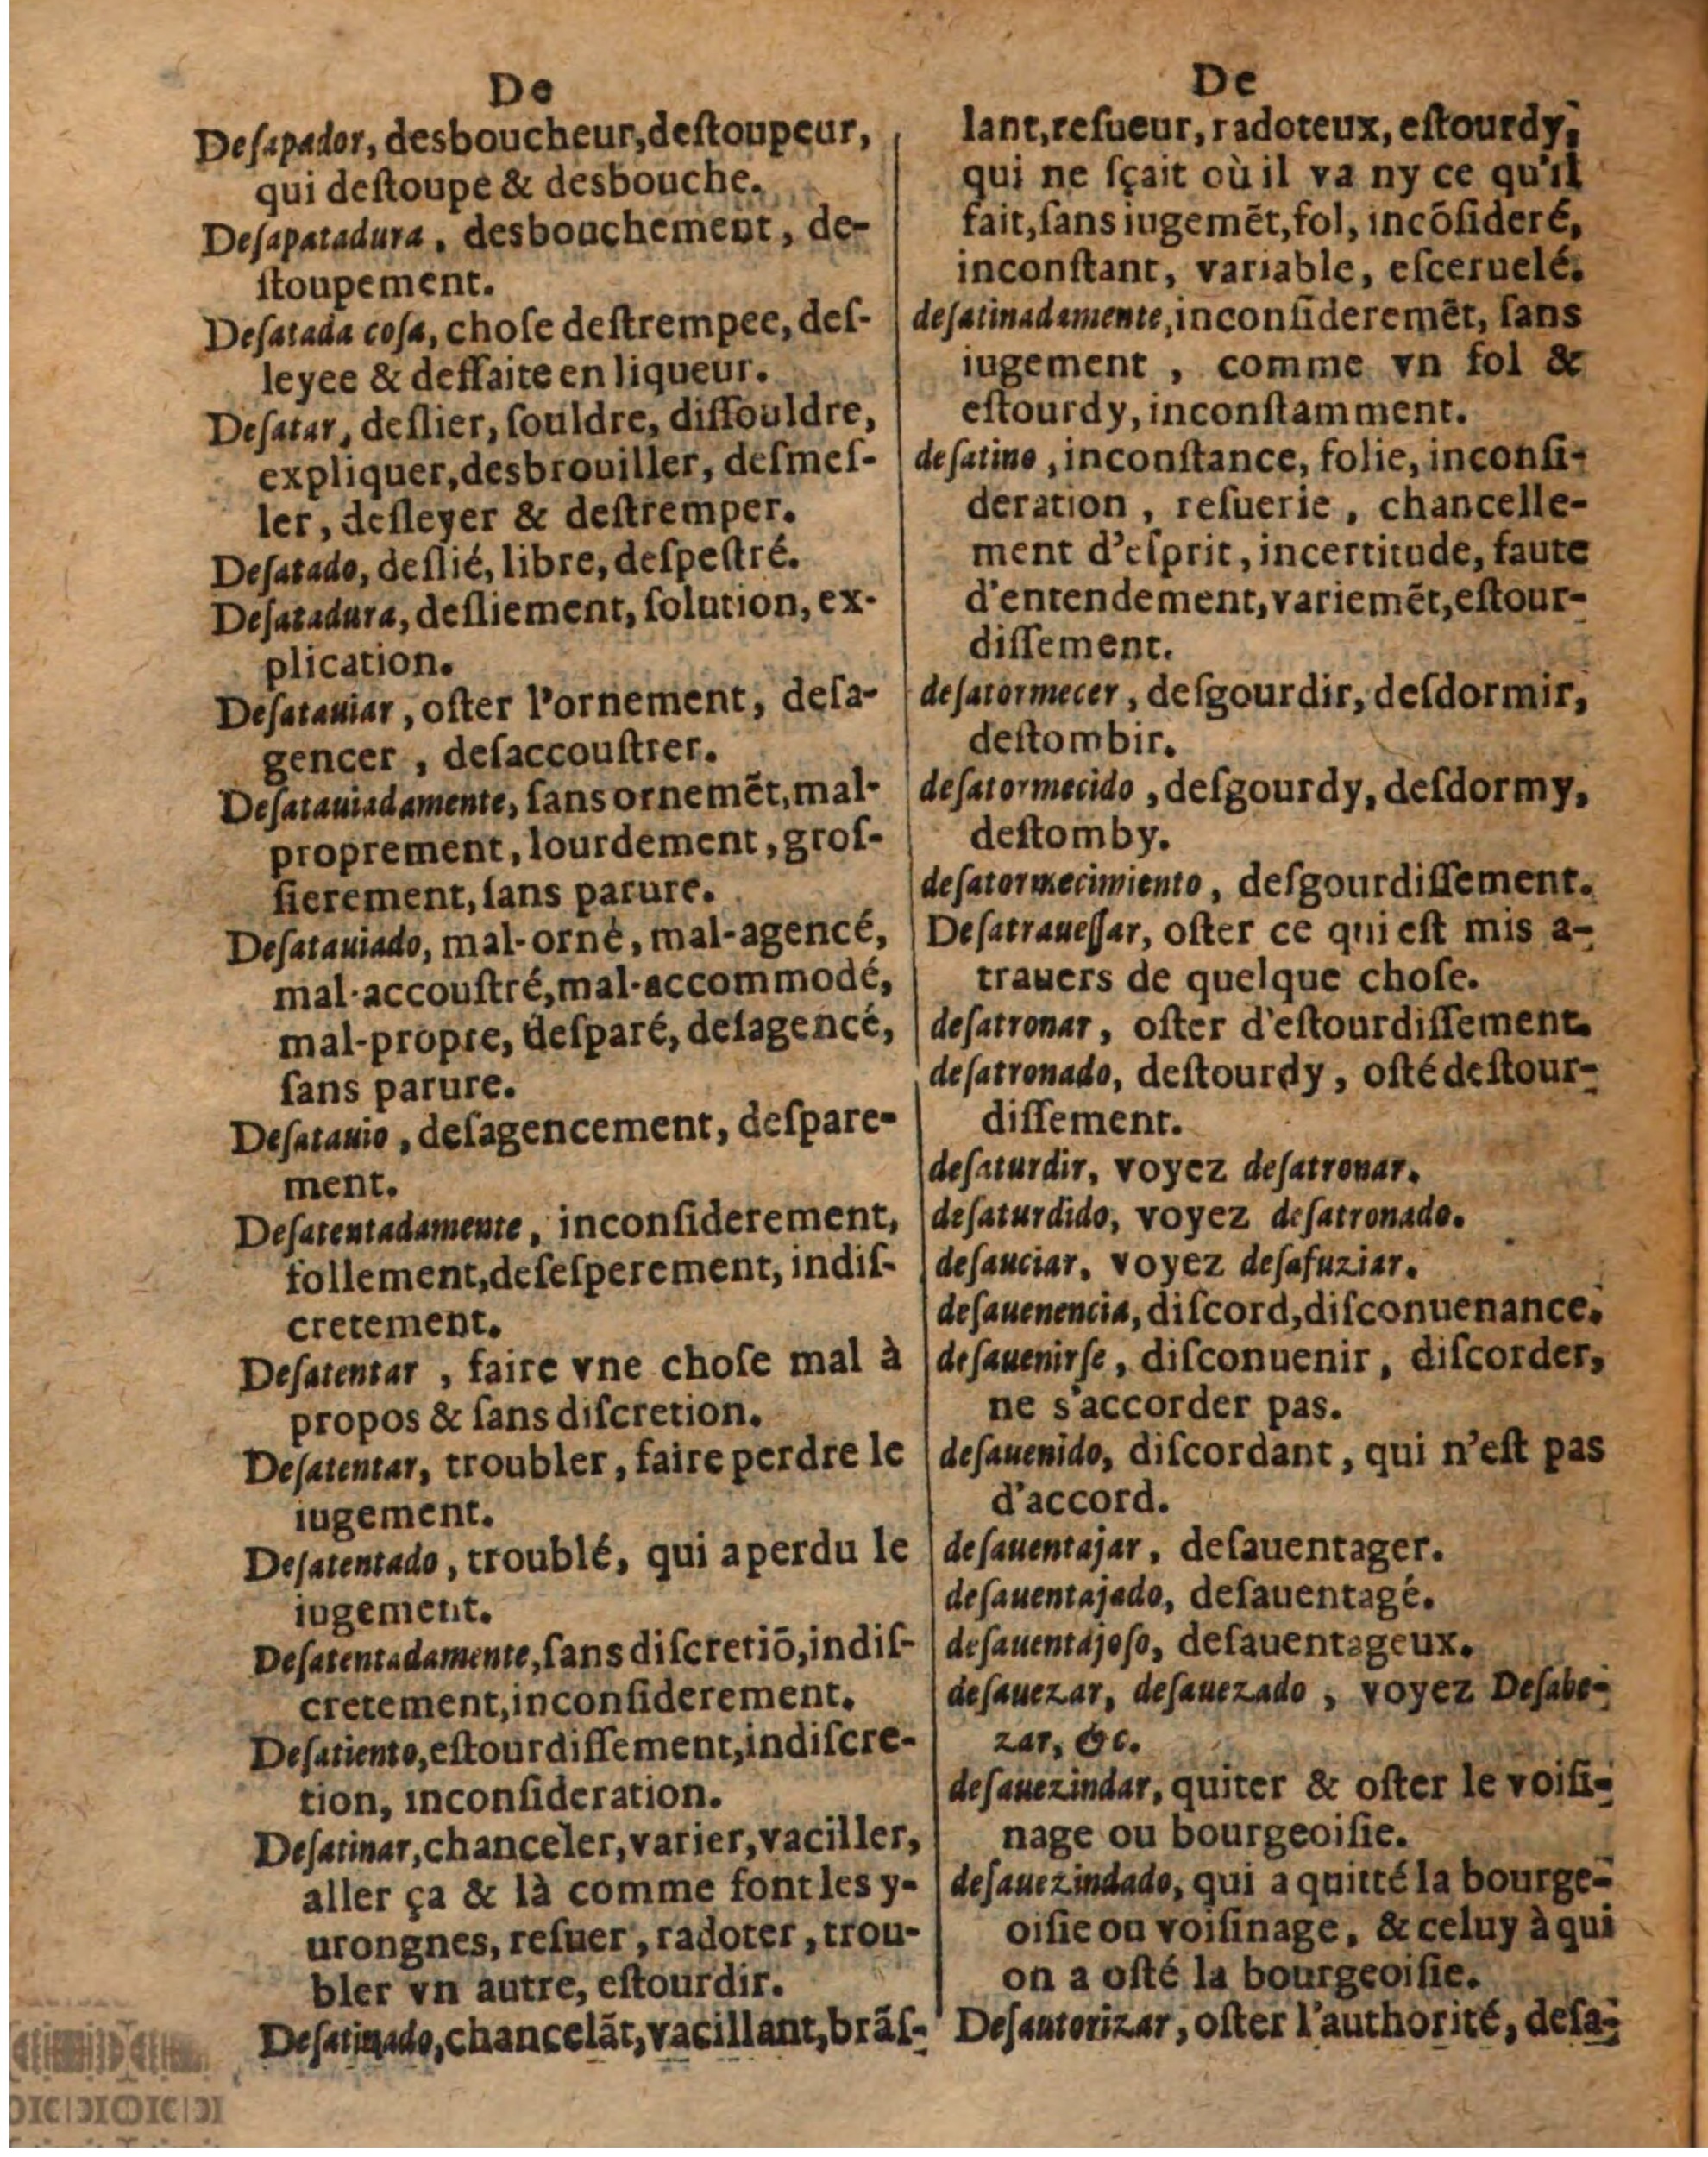 De
Deſapador, desboucheur,deſtoupeur,
qui deſtoupe & desbouche.
Deſapatadura, desbouchement, de-
ſtoupement.
Deſatada coſa, choſe deſtrempee, deſ-
leyee & deffaite en liqueur.
Deſatar, deſlier, ſouldre, diſſouldre,
expliquer,desbrouiller, deſmeſ-
ler, deſleyer & deſtremper.
Deſatado, deſlié, libre, deſpeſtré.
Deſatadura, deſliement, ſolution, ex-
plication.
Deſatauiar, oſter l'ornement, deſa-
gencer, deſaccouſtrer.
Deſatauiadamente, ſans ornemẽt, mal-
proprement, lourdement, groſ-
ſierement, ſans parure.
Deſatauiado, mal-orné, mal-agencé,
mal-accouſtré,mal-accommodé,
mal-propre, deſparé, deſagencé,
ſans parure.
Deſatauio, deſagencement, deſpare-
ment.
Deſatentadamente, inconſiderement,
follement,deſeſperement, indiſ-
cretement.
Deſatentar, faire vne choſe mal à
propos & ſans diſcretion.
Deſatentar, troubler, faire perdre le
iugement.
Deſatentado, troublé, qui a perdu le
iugement.
Deſatentadamente,ſans diſcretiõ,indiſ-
cretement,inconſiderement.
Deſatiento,eſtourdiſſement,indiſcre-
tion, inconſideration.
Deſatinar,chanceler,varier,vaciller,
aller ça & là comme font les y-
urongnes, reſuer, radoter, trou-
bler vn autre, eſtourdir.
Deſatinado,chancelãt,vacillant,brãſ-
De
lant,reſueur, radoteux, eſtourdy,
qui ne ſçait où il va ny ce qu'il
fait,ſans iugemẽt,fol, incõſideré,
inconſtant, variable, eſceruelé.
deſatinadamente,inconſideremẽt, ſans
iugement, comme vn fol &
eſtourdy, inconſtamment.
deſatino, inconſtance, folie, inconſi-
deration, reſuerie, chancelle-
ment d'eſprit, incertitude, faute
d'entendement,variemẽt,eſtour-
diſſement.
deſatormecer, deſgourdir, deſdormir,
deſtombir.
deſatormecido, deſgourdy, deſdormy,
deſtomby.
deſatormecimiento, deſgourdiſſement.
Deſatraueſſar, oſter ce qui eſt mis a-
trauers de quelque choſe.
deſatronar, oſter d'eſtourdiſſement.
deſatronado, deſtourdy, oſté deſtour-
diſſement.
deſaturdir, voyez deſatronar.
deſaturdido, voyez deſatronado.
deſauciar, voyez deſafuziar.
deſauenencia, diſcord,diſconuenance.
deſauenirſe, diſconuenir, diſcorder,
ne s'accorder pas.
deſauenido, diſcordant, qui n'eſt pas
d'accord.
deſauentajar, deſauentager.
deſauentajado, deſauentagé.
deſauentajoſo, deſauentageux.
deſauezar, deſauezado, voyez Deſabe-
zar, &c.
deſauezindar, quiter & oſter le voiſi-
nage ou bourgeoiſie.
deſauezindado, qui a quitté la bourge-
oiſie ou voiſinage, & celuy à qui
on a oſté la bourgeoiſie.
Deſautorizar, oſter l'authorité, deſa-